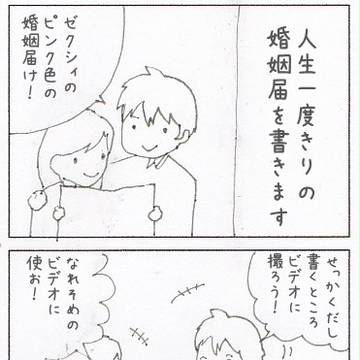 人生一度きりの
婚姻届を書きます
ゼクシィの
ピンク色の
婚姻届け！
せっかくだし
書くところ
ビデオに
撮ろう！
なれそめの
ビデオに
使お！